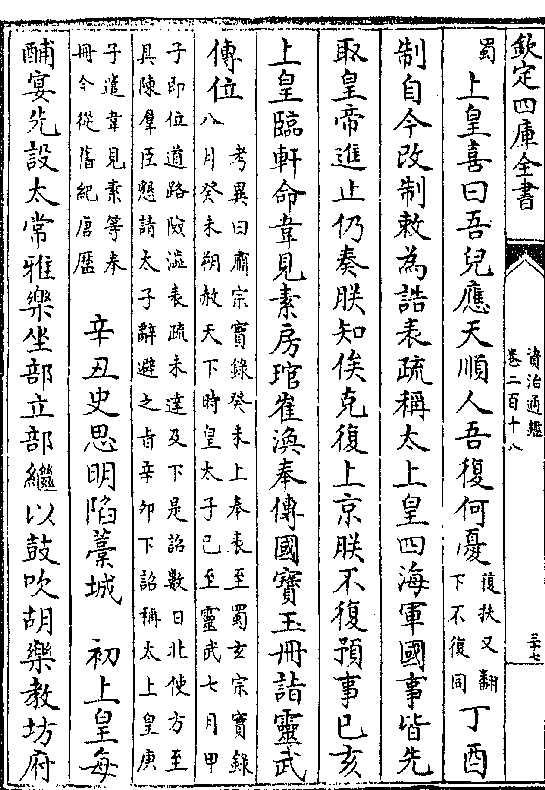 欽定四庫全書
資治通鑑
卷二百十八
三十七
蜀上皇喜曰吾兒應天順人吾復何憂復扶又翻下不復同丁酉
制自今改制敕為誥表疏稱太上皇四海軍國事皆先
取皇帝進止仍奏朕知俟克復上京朕不復預事已亥
上皇臨軒命韋見素房琯崔渙奉傳國寶玉冊詣靈武
傳位考異曰肅宗實錄癸未上奉表至蜀玄宗實錄八月癸未朔赦天下時皇太子已至靈武七月甲
子即位道路險澁表疏未達及下是詔數日北使方至具陳羣臣懇請太子辭避之㫖辛卯下詔稱太上皇庚
子遣韋見素等奉冊今從舊紀唐歴 辛丑史思明陷藁城 初上皇每
酺宴先設太常雅樂坐部立部繼以鼓吹胡樂教坊府